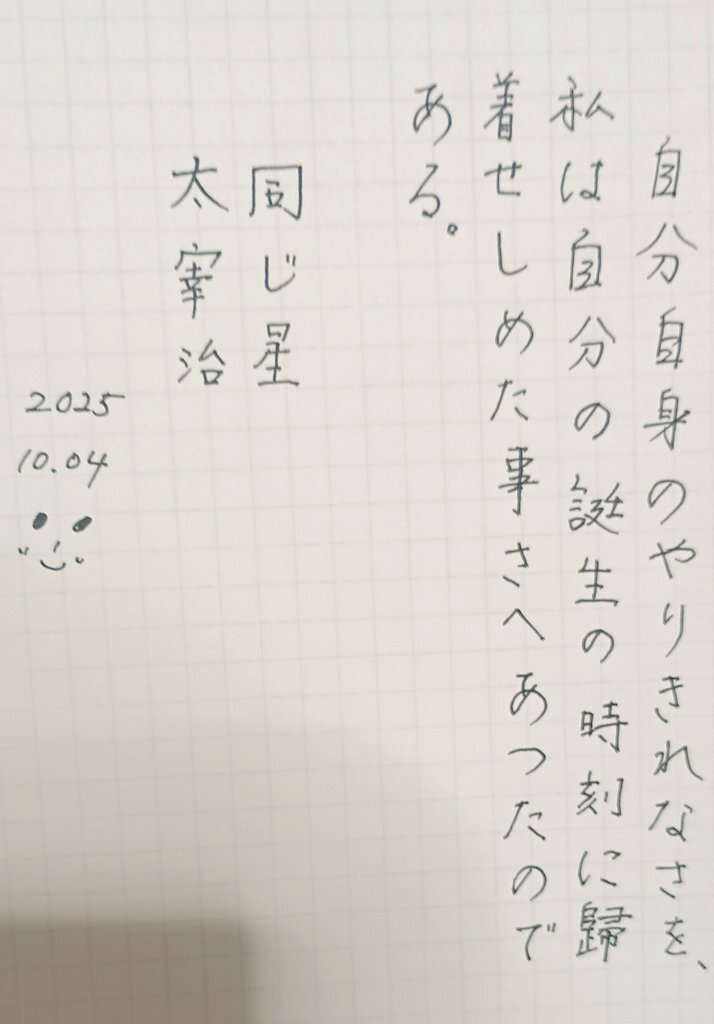 自分自身のやりきれなさを、
私は自分の誕生の時刻に歸
着せしめた事さへあつたので
ある。
同じ星
太宰治
2025
10.04